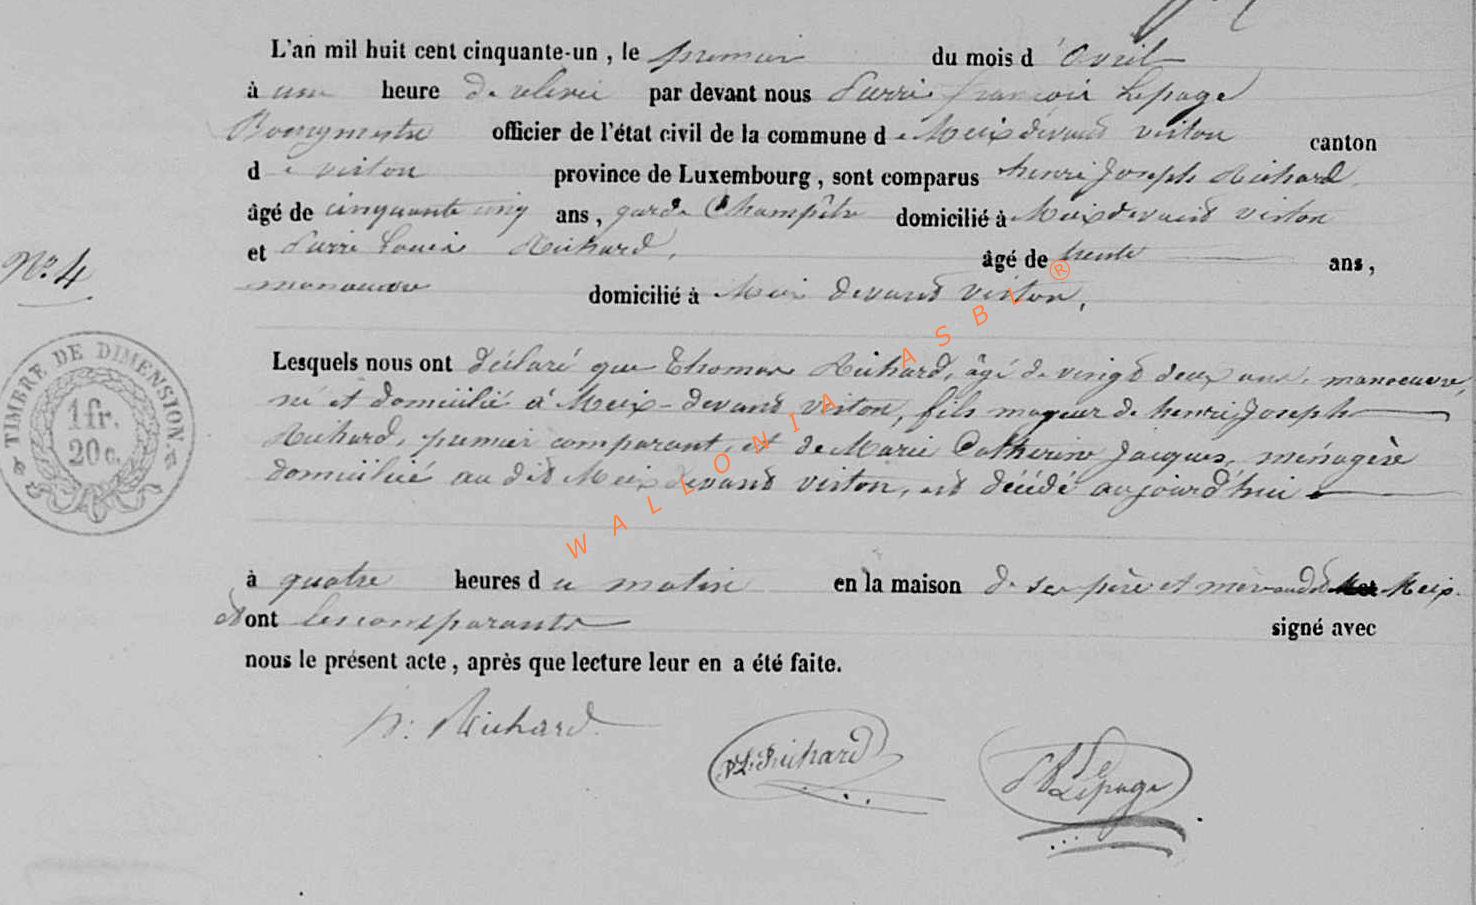 L'an mil huit cent cinquante-un, le premier du mois d'Avril
à une heure de relevée par devant nous Pierre françois Lepage
Bourgmestre officier de l'état civil de la commune de Meix devant virton canton
de virton province de Luxembourg, sont comparus henri Joseph Richard
âgé de cinquante cinq ans, garde Champêtre domicilié à Meix devant virton
et Pierre Louis Richard, âgé de trente ans,
N° 4
manoeuvre domicilié à Meix devant virton,
TIMBRE DE DIMENSION
1 fr.
20 c.
Lesquels nous ont déclaré que Thomas Richard, âgé de vingt deux ans, manoeuvre,
né et domicilié à Meix-devant virton, fils majeur de henri Joseph
Richard, premier comparant, et de Marie Catherine Jacques, ménagère
domicilié au dit Meix devant virton, est décédé aujourd'hui
à quatre heures du matin en la maison de ses père et mère audit Meix.
Et ont les comparants signé avec
nous le présent acte, après que lecture leur en a été faite.
h: Richard
PL. Richard
Lepage
WALLONIA ASBL ®